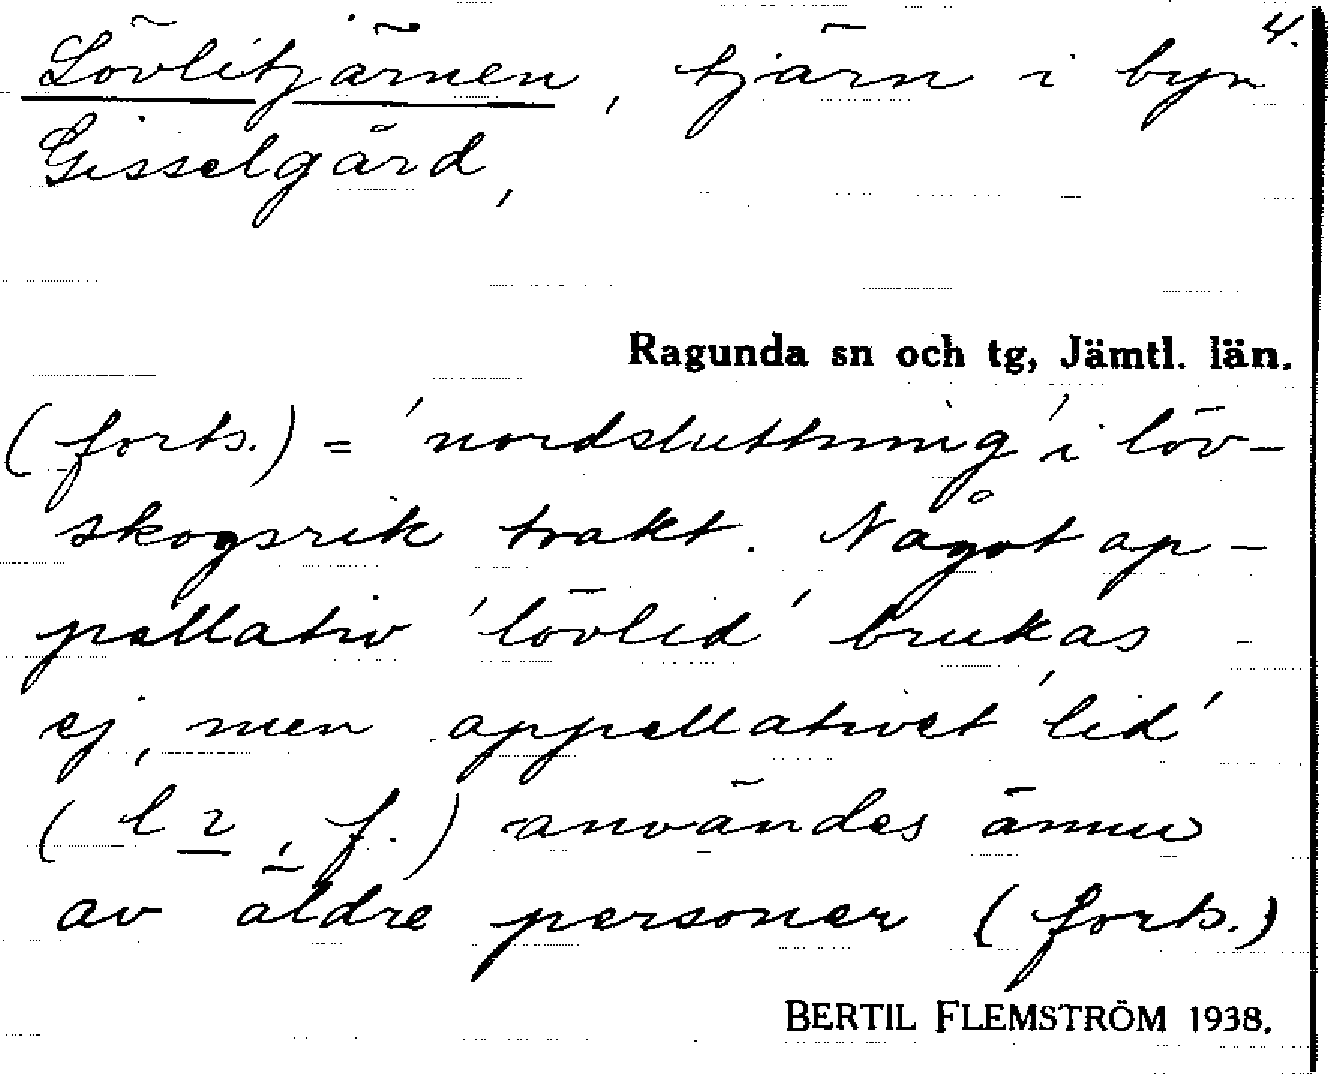 4.
Lövlitjärnen, tjärn i byn
Gisselgård,
Ragunda sn och tg, Jämtl. län.
(forts.) = 'nordsluttning' i löv-
skogsrik trakt. Något ap-
pellativ 'lövlid' brukas
ej, men appellativet 'lid'
(lı, f.) användes ännu
av äldre personer (forts.)
BERTIL FLEMSTRÖM 1938.